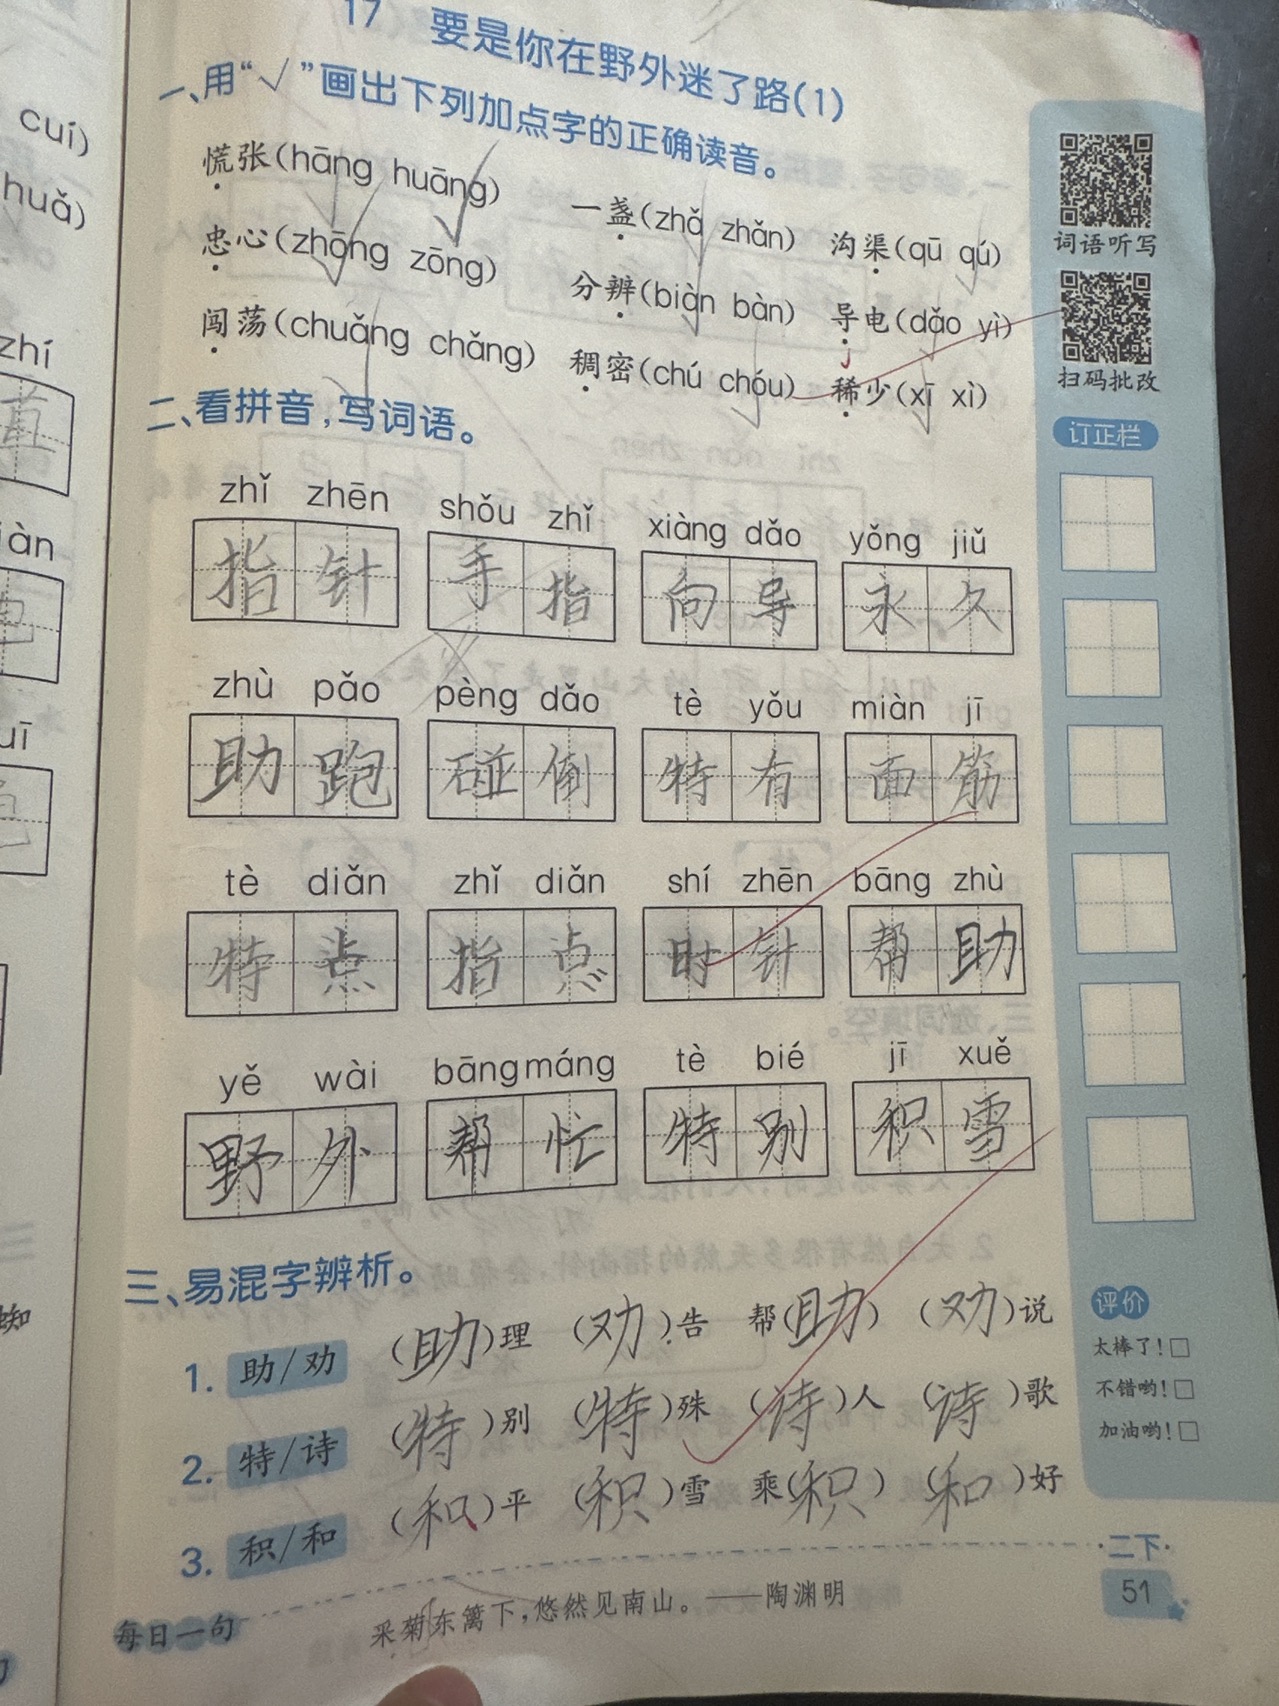 17 要是你在野外迷了路(1)
一、用“√”画出下列加点字的正确读音。
慌张(hāng huāng) 一盏(zhǎ zhǎn) 沟渠(qū qú)
忠心(zhōng zōng) 分辨(biàn bàn) 导电(dǎo yì)
闯荡(chuǎng chǎng) 稠密(chú chóu) 稀少(xī xì)
二、看拼音,写词语。
zhǐ zhēn shǒu zhǐ xiàng dǎo yǒng jiǔ
指针 手指 向导 永久
zhù pǎo pèng dǎo tè yǒu miàn jī
助跑 碰倒 特有 面筋
tè diǎn zhǐ diǎn shí zhēn bāng zhù
特点 指点 时针 帮助
yě wài bāng máng tè bié jī xuě
野外 帮忙 特别 积雪
三、易混字辨析。
1. 助/劝 (助)理 (劝)告 帮(助) (劝)说
2. 特/诗 (特)别 (特)殊 (诗)人 (诗)歌
3. 积/和 (和)平 (积)雪 乘(积) (和)好
每日一句 采菊东篱下,悠然见南山。——陶渊明
词语听写
扫码批改
订正栏
评价
太棒了!□
不错哟!□
加油哟!□
·二下·
51
cuí)
huǎ)
zhí
直
iàn
uī
蜘